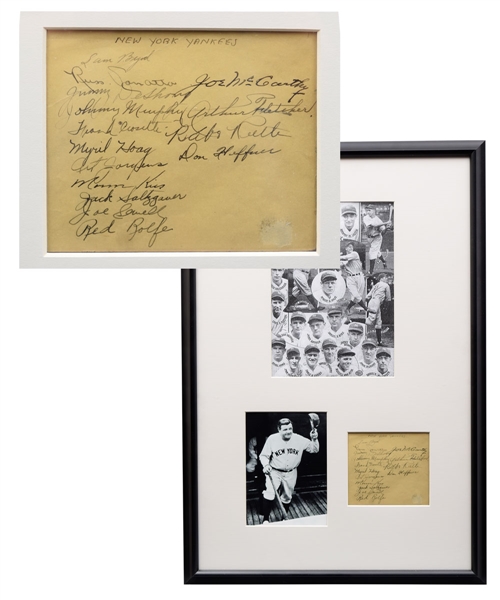 NEW YORK YANKEES
Sam Byrd
Russ Van Atta Joe McCarthy
Jimmy DeShong
Johnny Murphy Arthur Fletcher
Frank Crosetti Babe Ruth
Myril Hoag Don Heffner
Art Jorgens
Jack Saltzgaver
Joe Sewell
Red Rolfe
NEW YORK